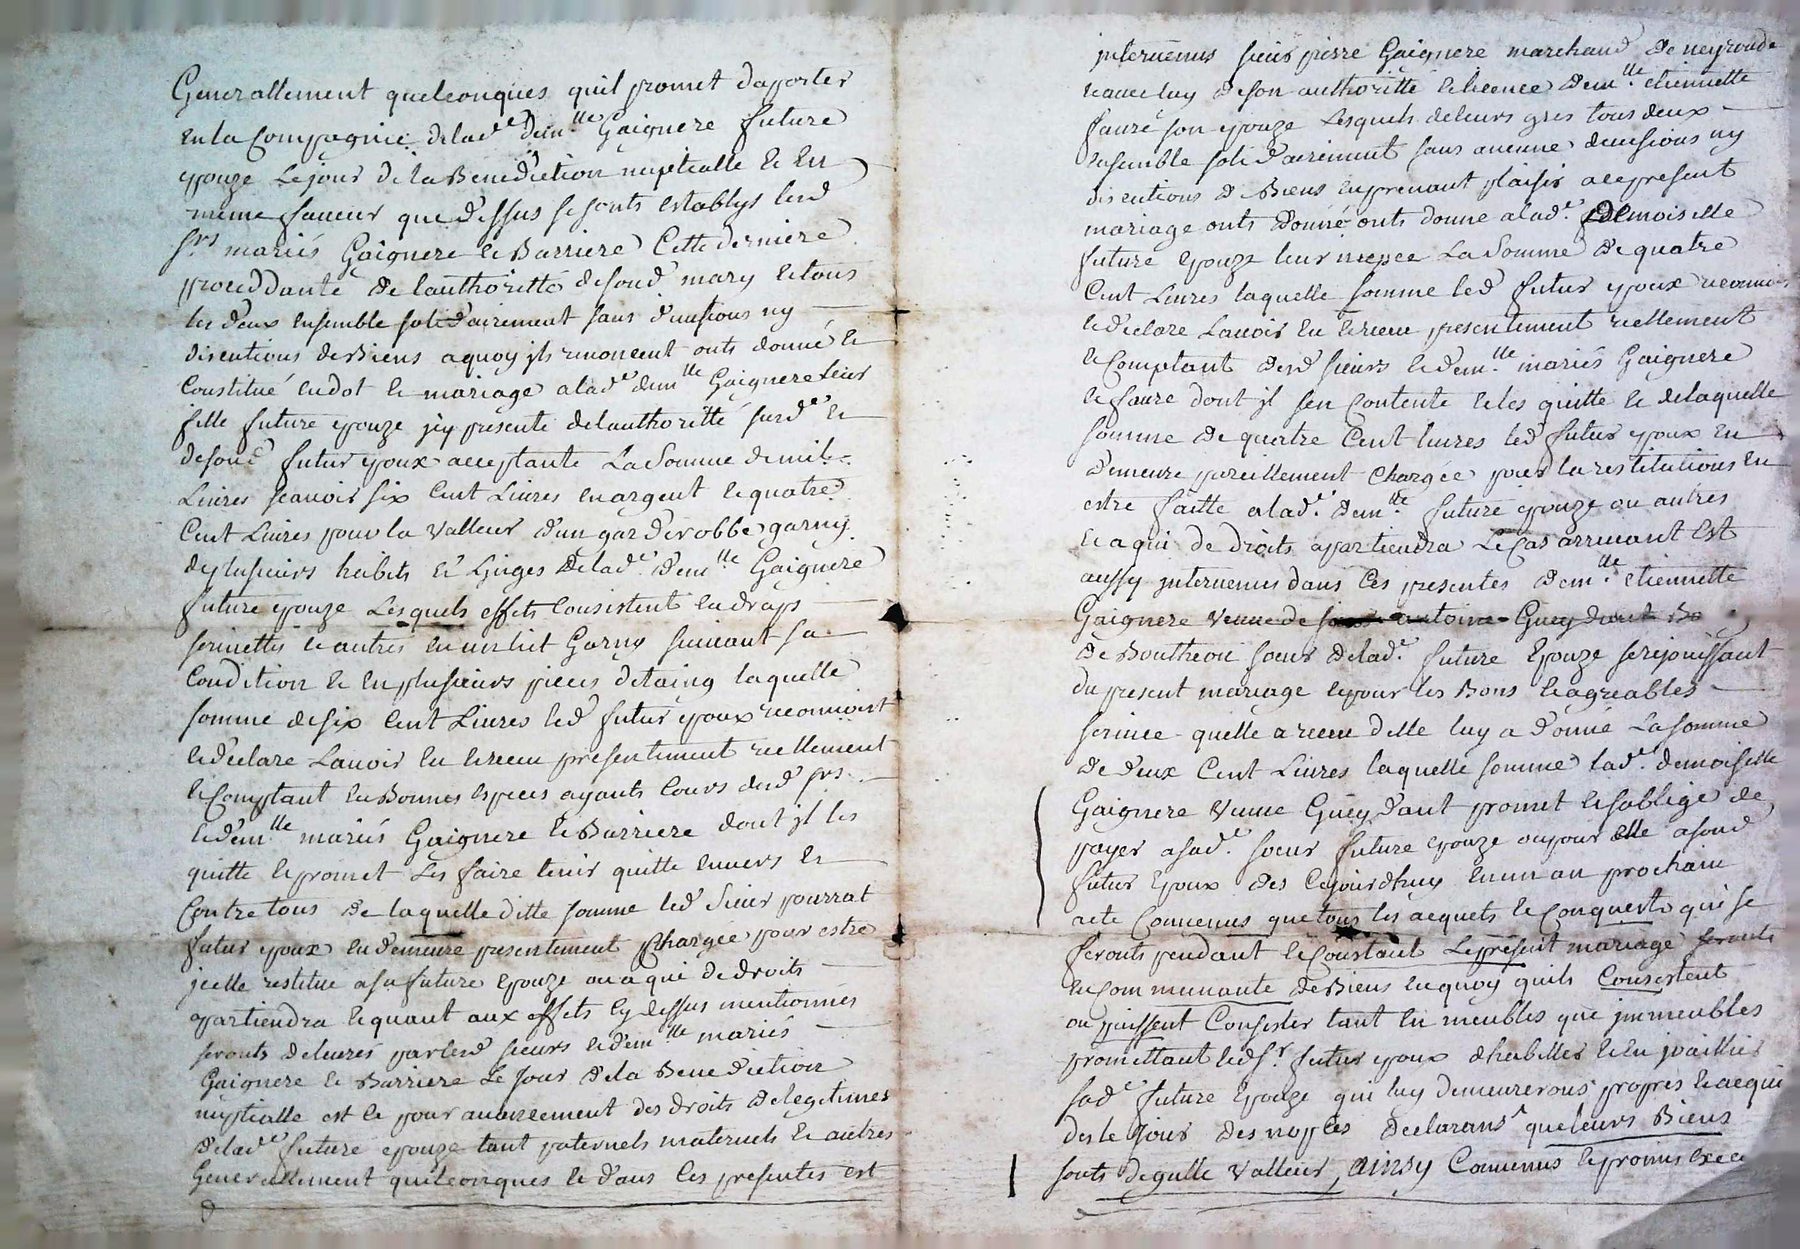 Generallement quelconques quil promet daporter
en la Compagnie de lad.e dem.lle Gaignere future
epouze le jour de la Benediction nuptialle & en
meme faveur que dessus se sonts establys lesd
srs mariés Gaignere & Barriere Cette derniere
proceddante de lauthoritté desond mary & tous
les deux ensemble solidairement sans divisions ny
discutions de Biens a quoy jls renoncent onts donné &
Constitué en dot & mariage a lad.e dem.lle Gaignere leur
fille future epouze jcy presente de lauthoritté susd.e &
desond futur epoux acceptante La Somme de mil
Livres scavoir six Cent Livres en argent & quatre
Cent Livres pour la Valleur dun garderobbe garny
de plusieurs habits & Linges de lad.e dem.lle Gaignere
future epouze Lesquels effets Consistent en draps
serviettes & autres en un lict Garny suivant sa
Condition & en plusieurs pieces detaing laquelle
somme de six Cent Livres led futur epoux reconnoist
& declare Lavoir eu & receu presentement reellement
& Comptant en Bonnes especes ayants Cours desd srs
& dem.lle mariés Gaignere & Barriere dont jl les
quitte & promet Les faire tenir quitte envers &
Contre tous de laquelle ditte somme led Sieur pourrat
futur epoux en demeure presentement Chargée pour estre
jcelle restitue a sa future epouze ou a qui de droits
apartiendra & quant aux effets cy dessus mentionnés
seronts delivrés par lesd sieurs & dem.lle mariés
Gaignere & Barriere Le Jour de la Benediction
nuptialle est ce pour avancement des droits de legitimes
de lad.e future epouze tant paternels maternels & autres
Generallement quelconques & dans Ces presentes est
jntervenus sieur pierre Gaignere marchand de
& avec luy de son authoritté & licence dem.lle etiennette
faure son epouze Lesquels de leurs gres tous deux
ensemble solidairement sans aucune divisions ny
discutions de Biens en prenant plaisir au present
mariage onts donné onts donne a lad.e demoiselle
future epouze leur niepce La Somme de quatre
Cent Livres laquelle somme led futur epoux reconnoit
& declare Lavoir eu & receu presentement reellement
& Comptant desd sieurs & dem.lle mariés Gaignere
& faure dont jl sen Contente & les quitte & de laquelle
somme de quatre Cent livres led futur epoux en
demeure pareillement Chargée pour la restitutions en
estre faitte a lad.e dem.lle future epouze ou autres
& a qui de droits apartiendra Le Cas arrivant Est
aussy jntervenus dans Ces presentes dem.lle etiennette
Gaignere Veuve de antoine
de Boutheon sœur de lad.e future Epouze se rejouissant
du present mariage & pour les Bons & agreables
service quelle a receu delle luy a donné La Somme
de deux Cent Livres laquelle somme lad.e demoiselle
Gaignere Veuve promet & soblige de
payer a sad.e sœur future epouze ou pour elle a sond
futur epoux des Cejourdhuy en un an prochain
acte Convenus que tous les acquets & Conquests qui se
feronts pendant & Constant Le present mariage seronts
en Communauté de Biens en quoy quils Consistent
ou puissent Consister tant en meubles que jmmeubles
promettant led s.r futur epoux dhabiller & en joailler
sad.e future Epouze qui luy demeurerons propres & acquis
des le Jour des nopces declarans que leurs Biens
sonts de gulle Valleur, Ainsy Convenus & promis